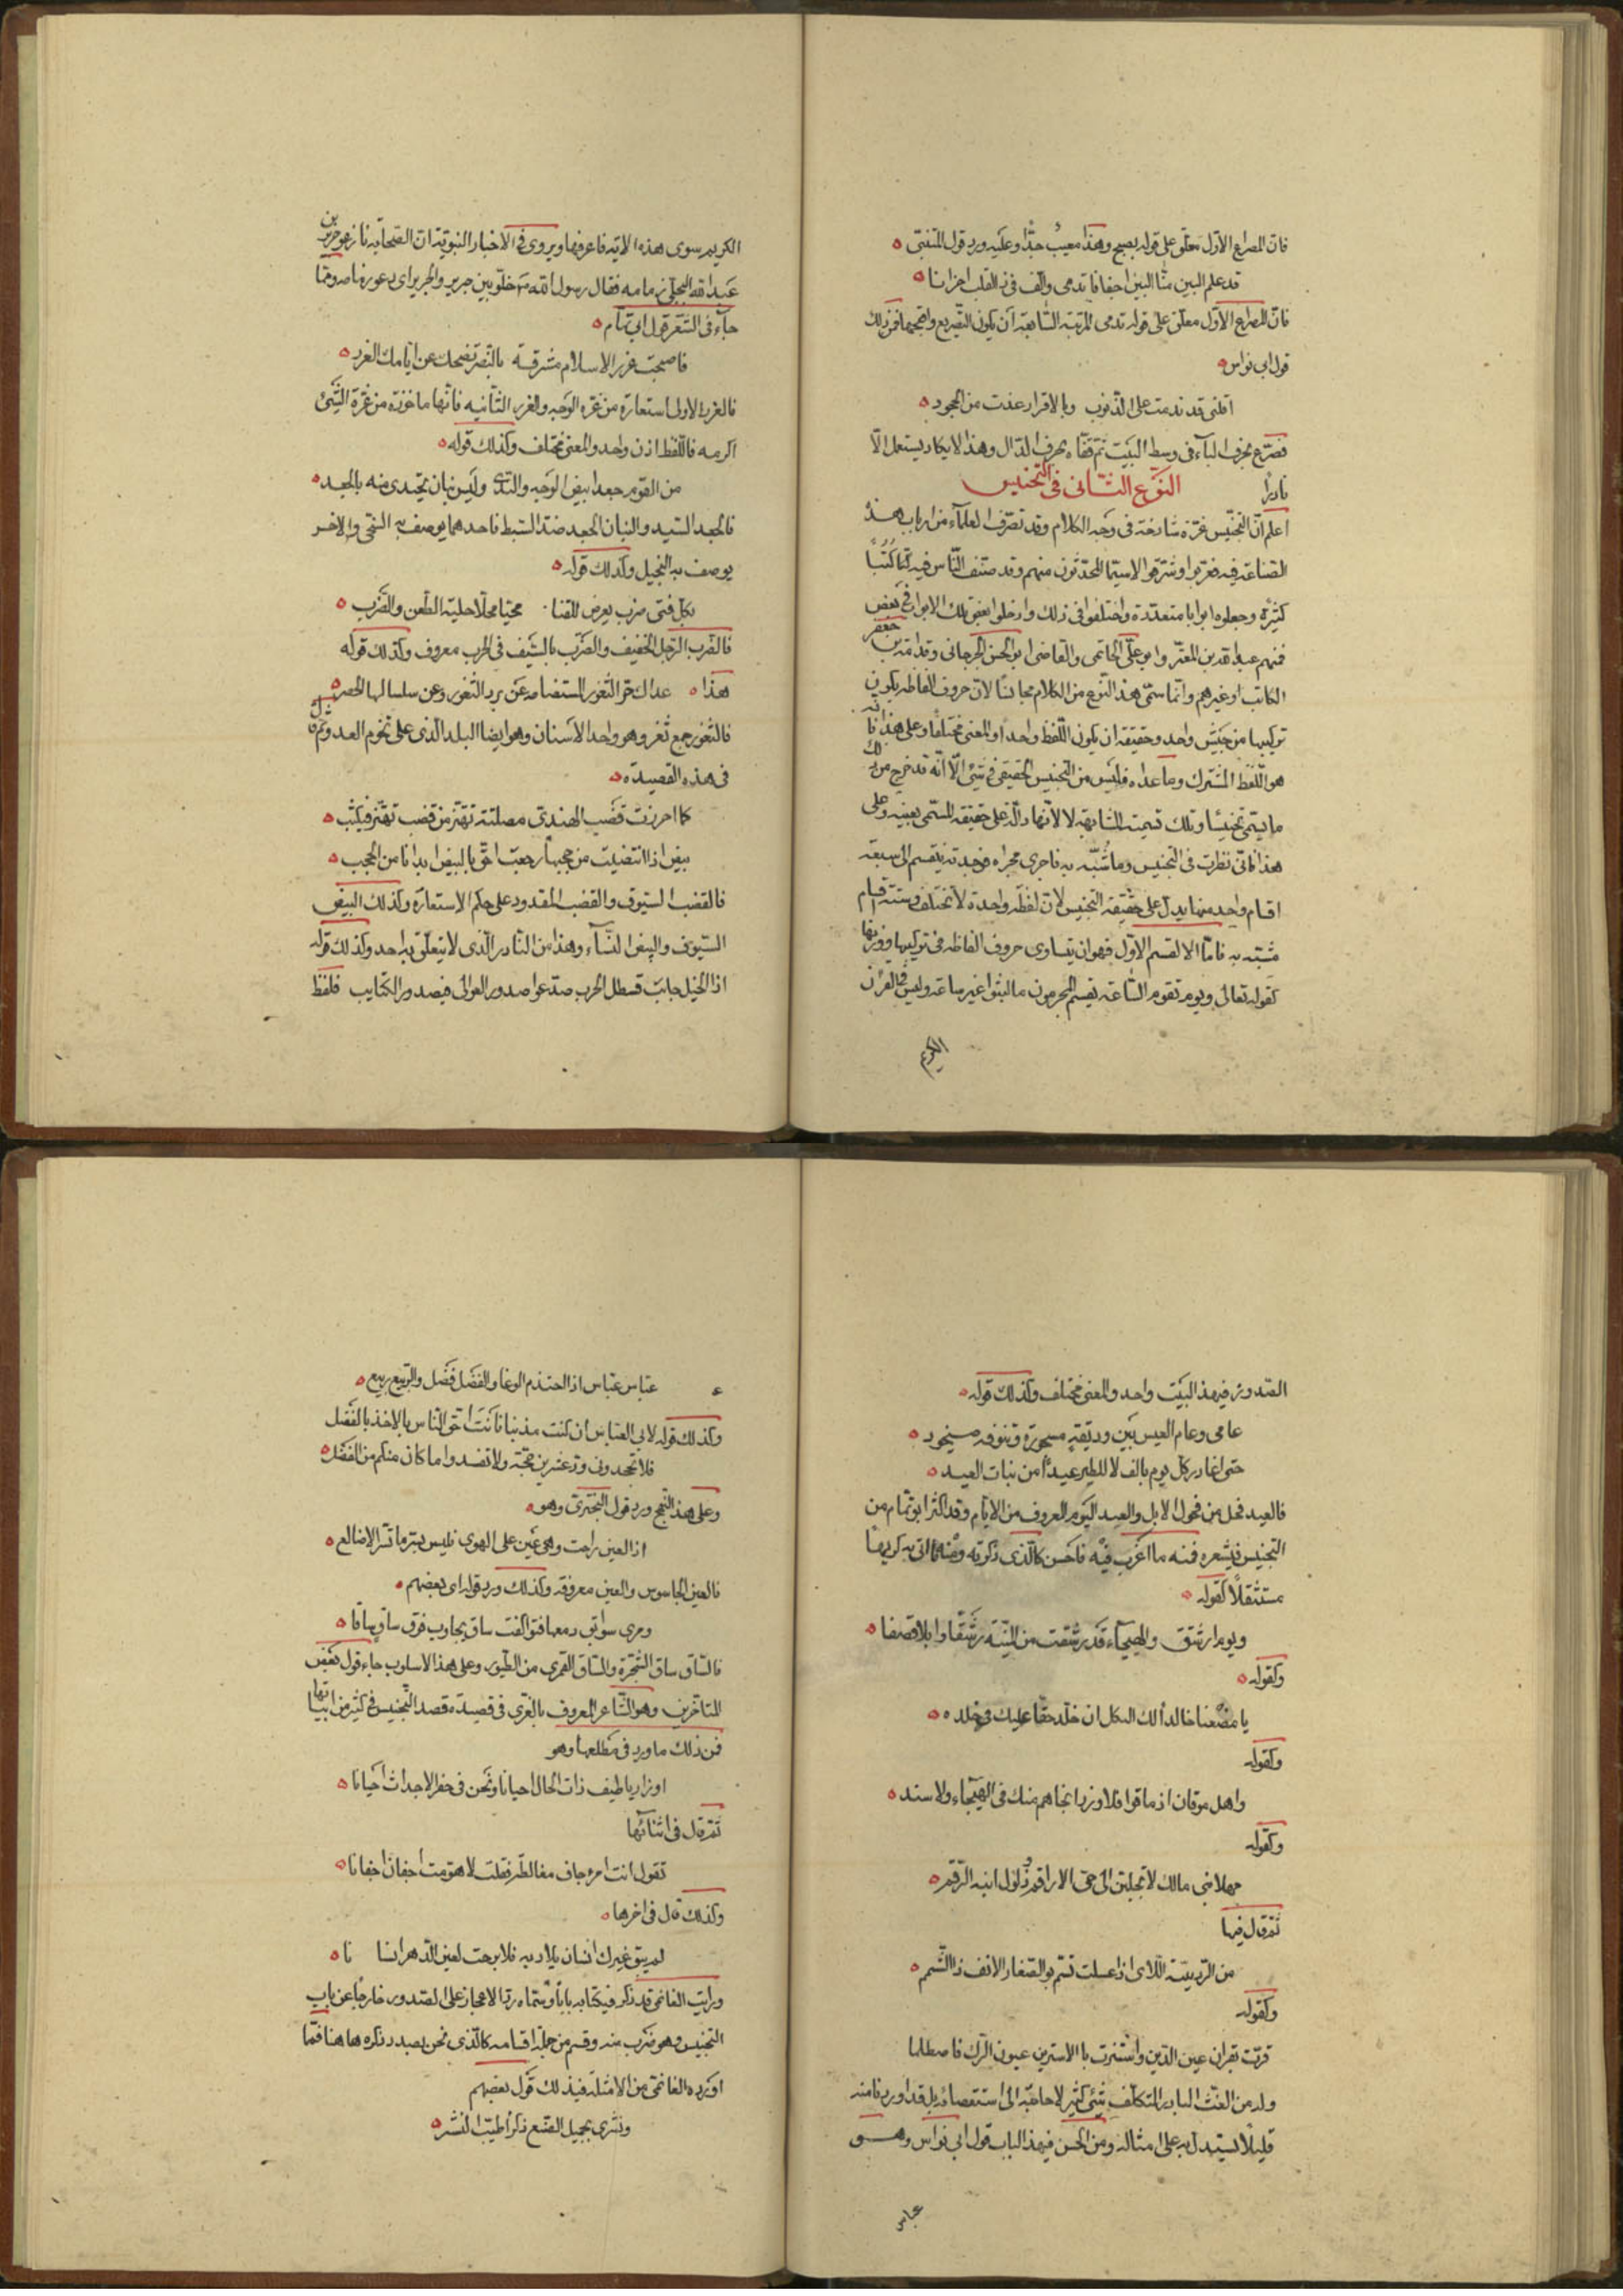 فان المصراع الاول معلّق على قوله بصبح وهذا معيب جدًّا وعليه ورد قول المتنبى
قد علم البين منّا البين اجفانا تدمى والف فى ذا القلب احزانا
فان المصراع الاول معلق على قوله تدمى المرتبة السّابعة ان يكون التصريع
قول ابى نواس
اقلنى قد ندمت على الذنوب وبالاقرار عذت من الجحود
فصرّع بحرف الباء فى وسط البيت ثم قفاه بحرف الدال وهذا لا يكاد يستعمل الّا
نادرًا النوع الثّانى فى التجنيس
اعلم انّ التجنيس غرّة شادخة فى وجه الكلام وقد تصرّف العلماء من ارباب هذه
الصناعة فيه فغربوا وشرّقوا لاسيّما المحدثون منهم وقد صنّف النّاس فيه كتبًا
كثيرة وجعلوه ابوابا متعددة واختلفوا فى ذلك وادخلوا بعض تلك الابواب فى بعض
فمنهم عبد الله بن المعتز وابو على الحاتمى والقاضى ابو الحسن الجرجانى وقدامة بن جعفر
الكاتب وغيرهم وانما سمّى هذا النّوع من الكلام مجانسًا لان حروف الفاظه يكون
تركيبها من جنس واحد وحقيقته ان يكون اللفظ واحدا والمعنى مختلفا وعلى هذا فانه
هو اللّفظ المشترك وما عداه فليس من التجنيس الحقيقى فى شىء الّا انّه قد خرج من ذلك
ما يسمّى تجنيسا وتلك تسمية بالمشابهة لا لانّها دالّة على حقيقة المسمّى بعينه وعلى
هذا فانّى نظرت فى التجنيس وما شُبّه به فاجرى مجراه فوجدته ينقسم الى سبعة
اقسام واحد منها يدلّ على حقيقة التجنيس لانّ لفظه واحدة لا تختلف وستة اقسام
مشبّه به فامّا الا لقسم الاوّل فهو ان يتساوى حروف الفاظه فى تركيبها ووزنها
كقوله تعالى ويوم تقوم السّاعة يقسم المجرمون ما لبثوا غير ساعة وليس فى القرآن
الكريم
الكريم سوى هذه الاية فاعرفها ويروى فى الاخبار النبويّة ان الصّحابة نازعوا جرير بن
عبد الله البجلى زمامه فقال رسول الله صَ خلّو بين جرير والجرير اى دعو زمامه ومما
جاء فى الشّعر قول ابى تمّام
فاصبحت غرر الاسلام مشرقة بالنّصر تضحك عن ايّامك الغرر
فالغرر الاولى استعارة من غرر الوجه والغرر الثّانيه فانّها ماخوذة من غرّة الشّىء
اكرمه فاللّفظ اذن واحد والمعنى مختلف وكذلك قوله
من القوم جعد ابيض الوجه والنّدى وليس بنان يجتدى منه بالجعد
فالجعد السّيد والبنان الجعد ضدّ السّبط فاحدهما يوصف به السّخى والاخر
يوصف به البخيل وكذلك قوله
بكل فتى ضرب يعرض للقنا محيّا محلّا حلية الطّعن والضّرب
فالضّرب الرّجل الخفيف والضّرب بالسّيف فى الحرب معروف وكذلك قوله
هذا عداك حرّ الثغور المستضامه عَن برد الثّغور وعن سلسالها الحصب
فالثّغور جمع ثغر وهو واحد الاسنان وهو ايضا البلد الّذى على تخوم العدوّ ثم قال
فى هذه القصيدة
كم احرزت قضب الهندىّ مصلتة تهتزّ من قضب تهتز فى كثب
بيض اذا انتضيت من حجبها رجعت احقّ بالبيض ابدانا من الحجب
فالقضب السّيوف والقضب القدود على حكم الاستعارة وكذلك البيض
السّيوف والبيض النّساء وهذا من النّادر الّذى لا يتعلّق به احد وكذلك قوله
اذا الخيل جابت قسطل الحرب صدّعوا صدور العوالى فى صدور الكتايب فلفظ
الصّدور فى هذا البيت واحد والمعنى مختلف وكذلك قوله
عامى وعام العيس بَين وديقة مسجورة وتنوفه صيخود
حتى اغادر كل يوم بالفلا للطير عيدًا من بنات العيد
فالعيد فحل من فحول الابل والعيد اليوم المعروف من الايّام وقد اكثر ابو تمّام من
التجنيس فى شعره فمنه ما اغرب فيه فاحسن كالّذى ذكرته ومنه ما اتى به كريها
مستثقلًا كقوله
ويوم ارشق والهيجاء قد رشقت من المنيّة رشقا وابلا قصفا
وكقوله
يا مضغنا خالدا لك الثكل ان خلّد حقدا عليك فى خلده
وكقوله
واهل موقان اذ ماقوا فلا وزر انجاهم منك فى الهيجاء ولا سند
وكقوله
مهلا بنى مالك لا تجلبنّ الى حىّ الاراقم ذلول ابنة الرّقم
ثم قال فيها
من الردينيّة اللّاى اذا عسلت تشمّ بو الصّغار الانف ذا الشّمم
وكقوله
قرّت بقرّان عين الدّين وانشترت بالاشترين عيون الشّرك فاصطلما
وله من الغثّ البارد المتكلّف شىء كثير لا حاجة الى استقصائه بل قد اوردنا منه
قليلًا يستدلّ به على امثاله ومن الحسن فى هذا الباب قول ابى نواس وهو
عباس
عباس عبّاس اذا احتدم الوغا والفضل فضل والرّبيع ربيع
وكذلك قوله لابى العبّاس ان كنت مذنبا فانت احقّ النّاس بالاخذ بالفضل
فلا تجحدونى ودّ عشرين حجّة ولا تفسدوا ما كان منكم من الفضل
وعلى هذا النّهج ورد قول البحترى وهو
اذا العين راحت وهى عين على الهوى فليس بسرّ ما تسرّ الاضالع
فالعين الجاسوس والعين معروفة وكذلك ورد قوله اى بعضهم
وترى سوابق دمعها فتواكفت ساق يجاوب فوق ساق ساقا
فالسّاق ساق الشّجرة والسّاق القمرى من الطّيور وعلى هذا الاسلوب جاء قول بعض
المتاخّرين وهو الشّاعر المعروف بالمغرّى فى قصيدة قصد التّجنيس فى كثير من ابياتها
فمن ذلك ما ورد فى مطلعها وهو
اوزارنا طيف ذات الخال احيانا ونحن فى حفر الاجداث احيانا
ثم قال فى اثنائها
تقول انت امرء جاف مغالطة فقلت لا هوّمت اجفان اجفانا
وكذلك قال فى اخرها
لم يبق غيرك انسان يلاذ به فلا برحت لعين الدّهر انسا نا
ورايت الغانمى قد ذكر فى كتابه بابًا وسمّاه ردّ الاعجاز على الصّدور خارجًا عن باب
التجنيس وهو ضرب منه وقسم من جملة اقسامه كالّذى نحن بصدد ذكره هاهنا فمما
اورده الغانمى من الامثلة فى ذلك قول بعضهم
ونشرى بجميل الصّنع ذكرا طيّب النّشر